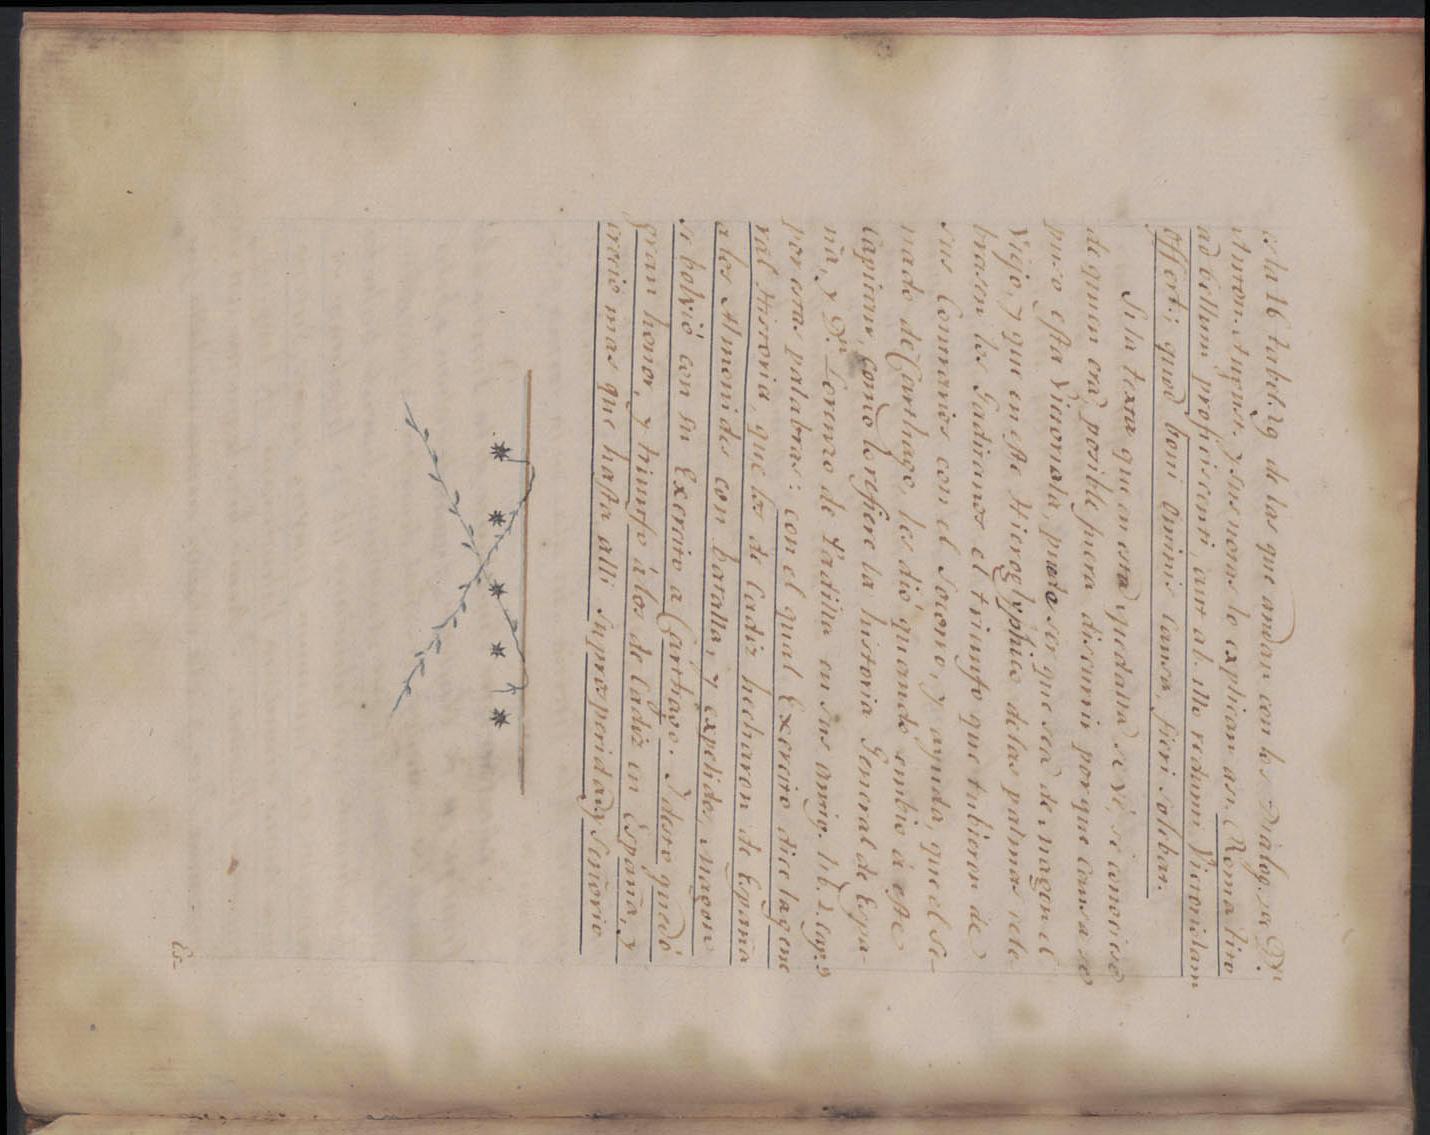 es la 16 tabel. 29 de las que andan con los Dialog. de Dn.
Anton. August. y sus notas lo explican asi. Roma tiro
ad bellum proficiscenti, aut ab illo redeunti Victoriolam
offert; quod boni ominis causa, fieri solebat.
Si la texta que en esta medalla se vè, se conociese
de quien era, posible fuera discurrir porque causa se
puso esta Victoriola, puedo ser que sea de Magon el
Viejo, y que en este Hieroglyphico de las palmas cele-
brasen los Gaditanos el triunfo que tubieron de
sus Contrarios con el Socorro, y ayuda, que el Se-
nado de Carthago, les dió quando embió à este
Capitan, como lo refiere la historia General de Espa-
ña, y Dn. Lorenzo de Padilla en sus antig. lib. 2. Cap. 9
por estas palabras: con el qual Exercito dice la gene
ral Historia, que los de Cadiz hecharon de España
a los Almonides con batalla, y expelidos, Magon
se bolvió con su Exercito a Carthago. I desto quedó
gran honor, y triunfo à los de Cadiz en España, y
creció mas que hasta alli su prosperidad, y Señorio
Es-